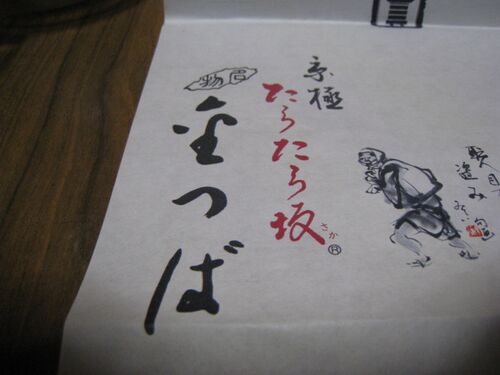 盗み
京極
たらたら坂
さか
®
名物
金つば